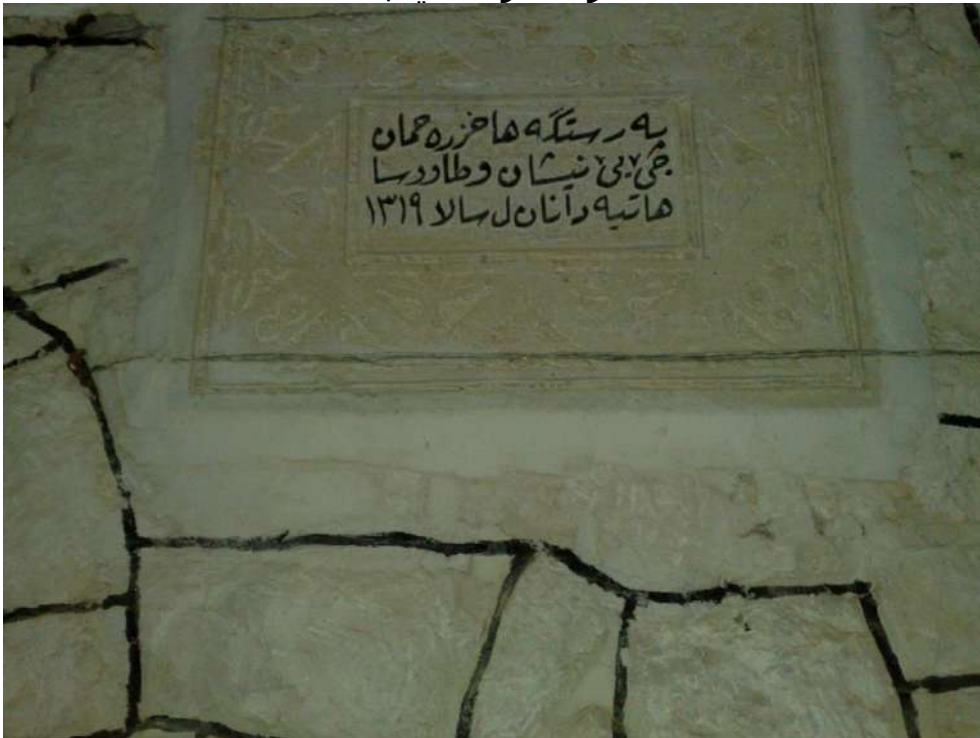 پەرستگەها خزرەحمان
جێ یێ نیشان و طاوسا
هاتیە دانان ل سالا ١٣١٩